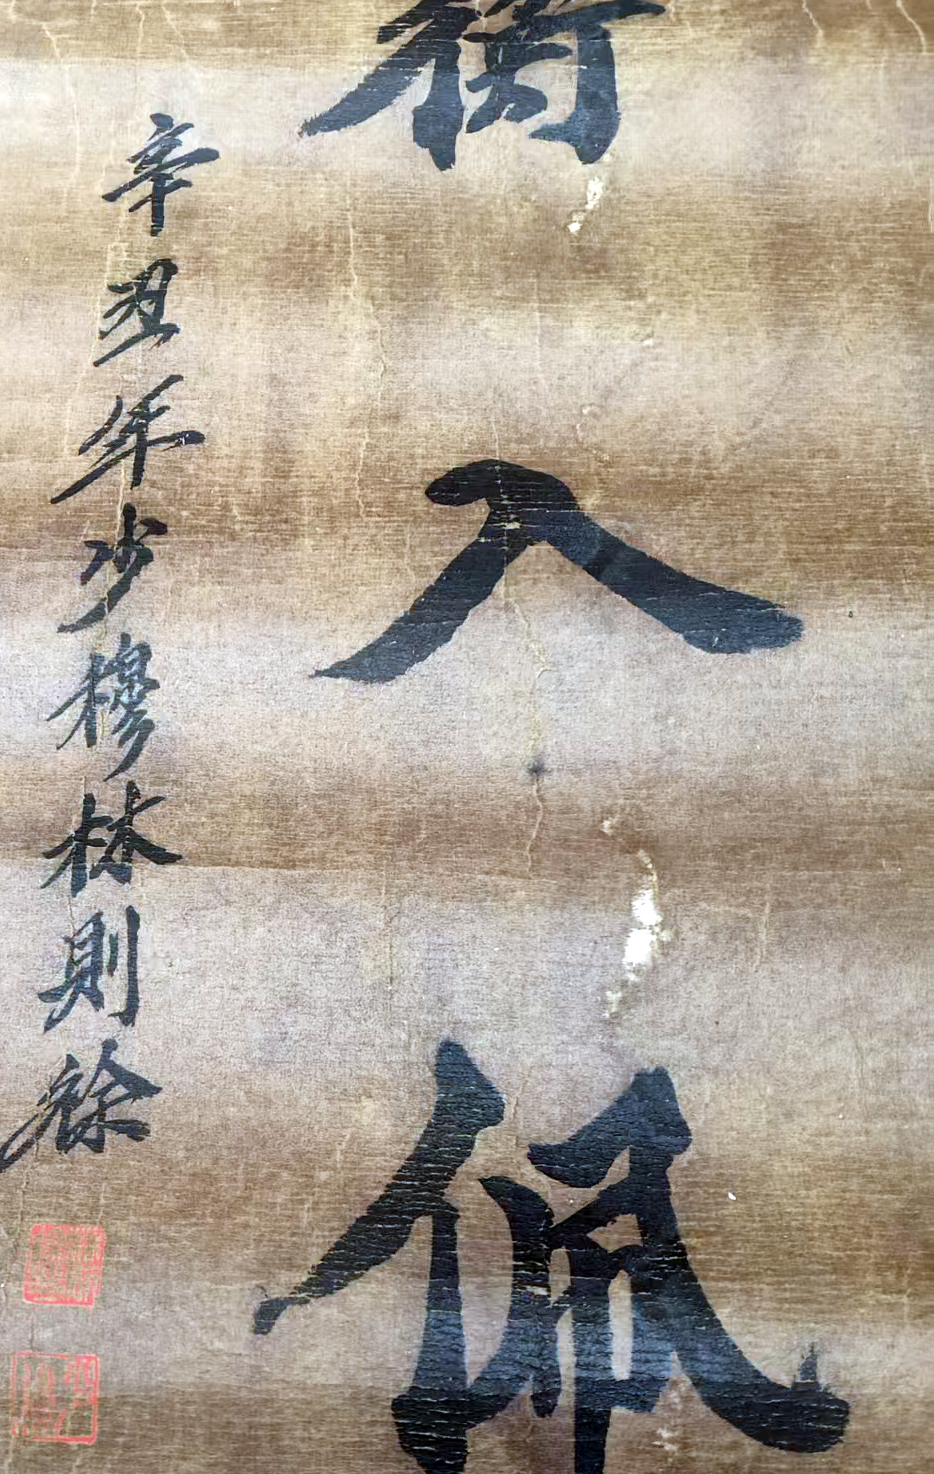 入佩
辛丑年少穆林則徐